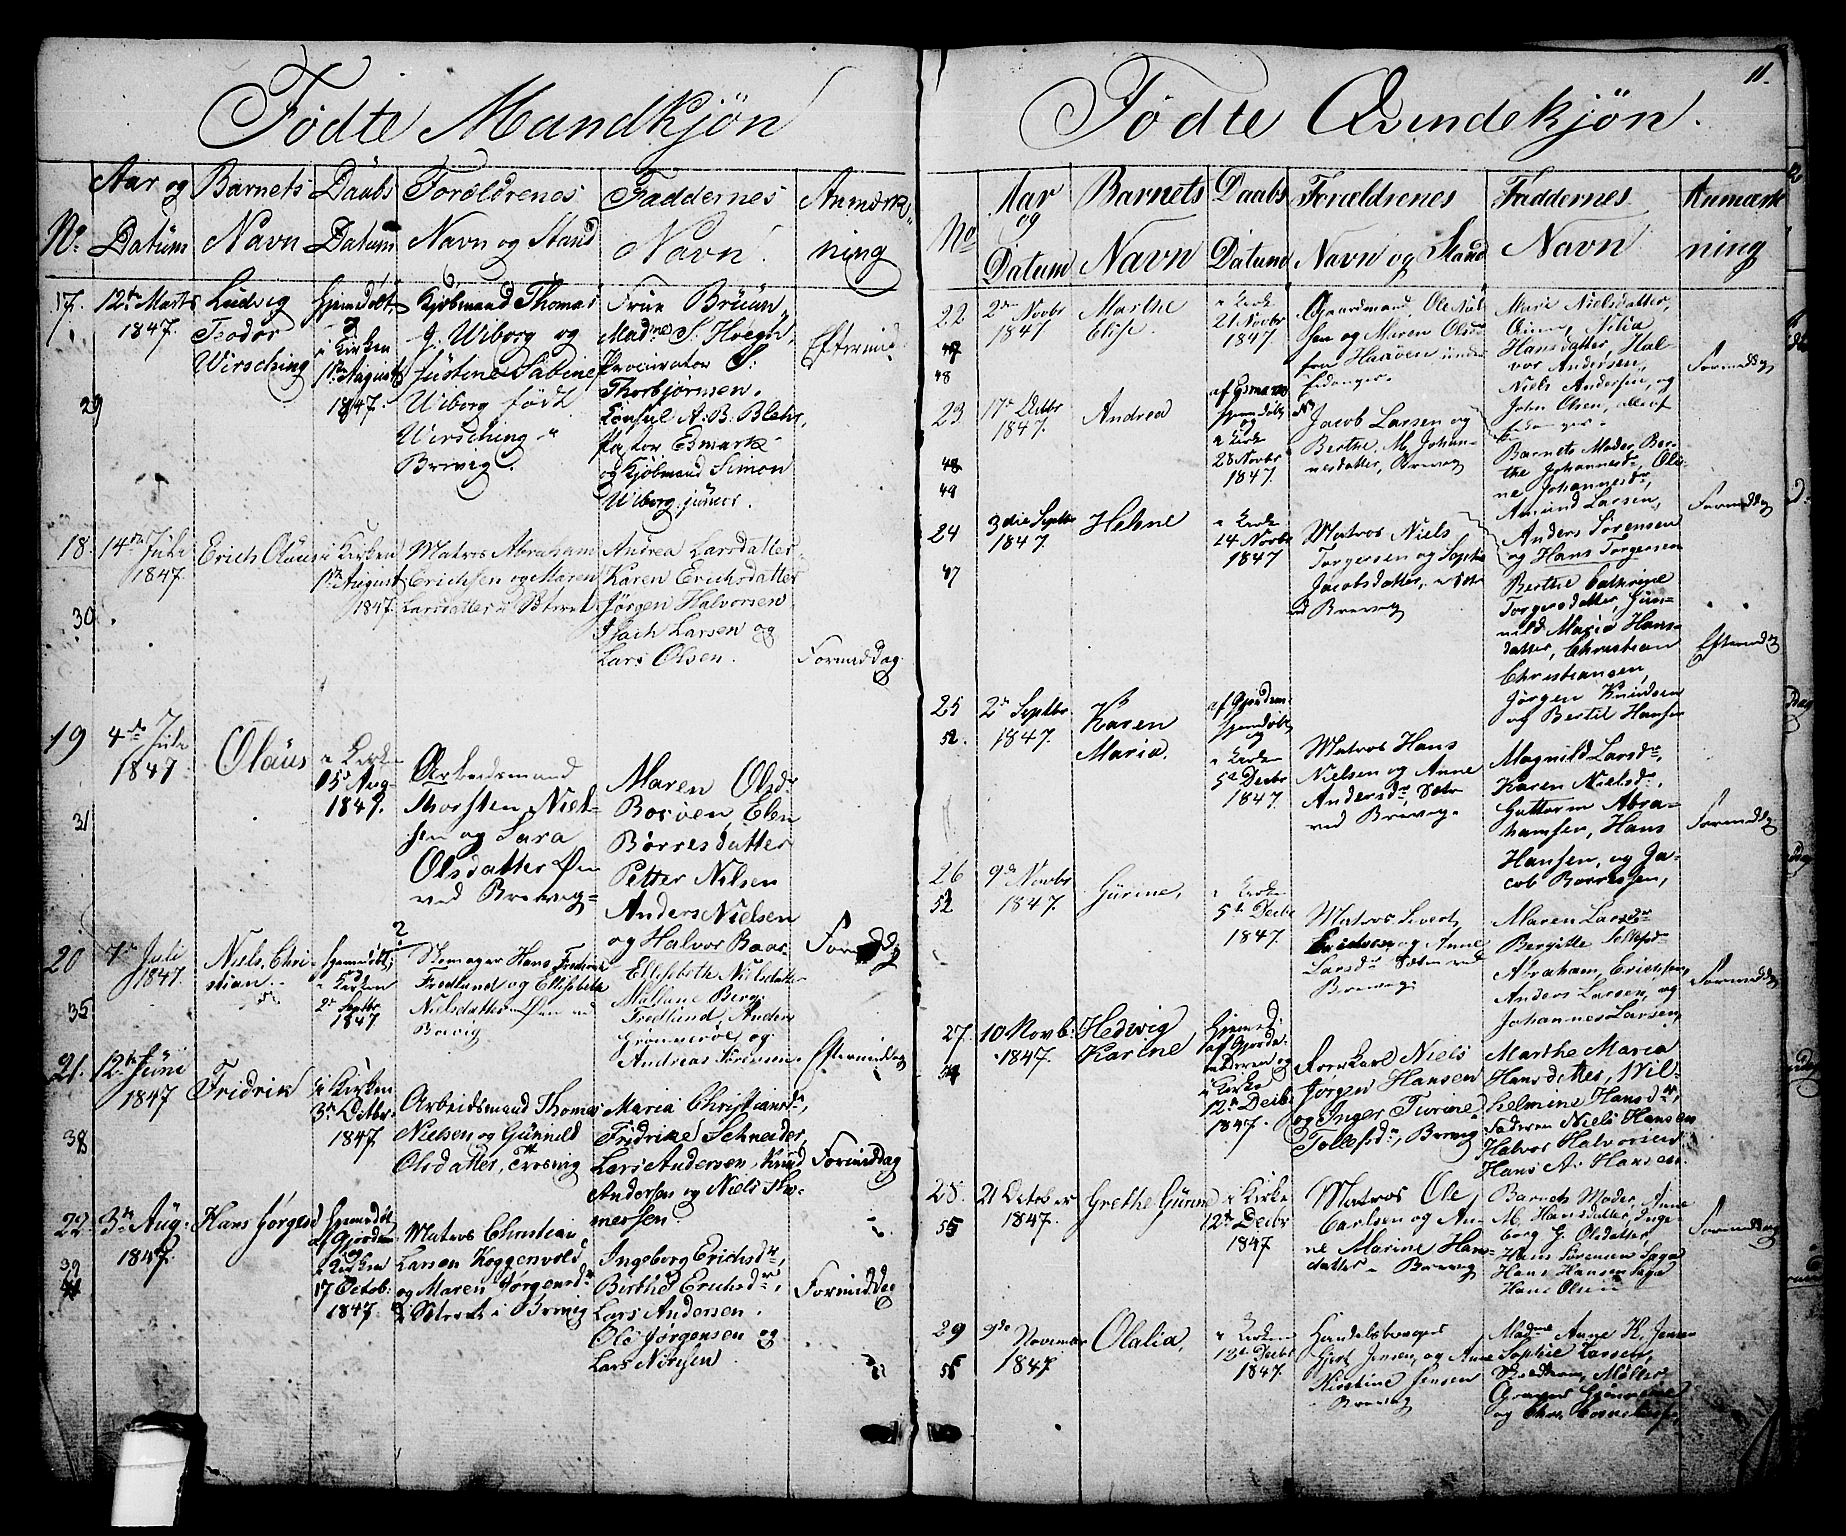 11.
Fødte Mandkjøn
No.
Aar og
Datum
Barnets
Navn
Daabs
Datum
Forældrenes
Navn og Stand
Faddernes
Navn.
Anmærk-
ning
17.
29
12te Marts
1847.
Ludvig
Teodor
Wirsching
Hjemdøbt,
i Kirken
1ste August
1847.
Kjøbmand Thomas
J. Wiborg og
Justine Sabine
Wiborg født
Wirsching
Brevig.
Frue Brüün,
Madme S. Hoegh,
Procurator S.
Thorbjörnsen,
Consul A. B. Blehr,
Pastor Esmark
og Kjöbmand Simon
Wiborg junior.
Eftermid
18.
30
14de Juli
1847.
Erich Olaus
i Kirken
1ste August
1847.
Matros Abraham
Erichsen og Maren
Larsdatter
Andrea Larsdatter
Karen Erichsdatter
Jörgen Halvorsen
Isach Larsen og
Lars Olsen.
Formiddag
19
31
4de Juli
1847
Olaus
i Kirk
15de Aug
1847.
Arbeidsmand
Thorsten Niel-
sen og Sara
Olsdatter Øen
ved Brevig
Maren Olsdr
Boröen, Elen
Börresdatter
Petter Nilsen
Anders Nielsen
og Halvor Baar-
20
35
7de Juli
1847.
Niels Chri-
stian.
Hjemdøbt,
i Kirken
2de Septbr
1847
Hans Fredrik
Fredlund og Ellisebeth
Nielsdatter Øen ved
Brevig
Ellisebeth Nielsdatter
Berg,
Fredlund, Anders
og
Andreas
Eftermiddag
21.
38
12te Juni
1847
Fridrik
i Kirken
3de Octbr:
1847.
Arbeidsmand Thomas
Nielsen og Gunnild
Olsdatter,
Maria Christiansdr,
Fridrike Schneider,
Lars Andersen, Knud
Andersen og Niels Tho-
mersen.
Formiddag
22.
39
3de Aug:
1847.
Hans Jørges
Hjemdøbt
af Gjordem
og
i Kirken
17 Octob:
1847.
Matros Christian
Larsen Koggenvold
og Maren Jørgensdr
i Brevig
Ingeborg Erichsdr,
Berthe Erichsdr,
Lars Andersen,
Ole Jørgensen og
Lars Nilsen.
Formiddag
Fødte Qvindekjøn.
No
Aar
og
Datum
Barnets
Navn
Daabs
Datum
Forældrenes
Navn og Stand
Faddernes
Navn
Anmærk
ning
22
48
2den Novbr
1847
Marthe
Elise.
i Kirke
21 Novbr
1847.
Gaardmand, Ole
sen og Maren Olsdr
fra Haaøen under
Eidanger
Mari Nielsdatter,
Hansdatter, Hal-
vor Andersen,
Niels Andersen, og
John Olsen, alle af
Eidanger
Formiddag
23
49
17de Octbr
1847.
Andrea
af Esmark
hjemdøbt
og
i Kirke
28 Novbr
1847.
Jacob Larsen og
Berthe M. Johan-
nesdatter, Brevig
Barnets Moder, Ber-
the Johannesdr, Oli-
ne Johannesdr
Amund Larsen,
Anders Sörensen
og Hans Torgersen
Formiddag
24
47
3die Septbr
1847.
Helene
i Kirke
14 Novbr
1847.
Matros Niels
Torgersen og Sophie
Jacobsdatter,
ved Brevig
Berthe Cathrine
Torgersdatter, Gun-
nild Maria Hans-
datter, Christian
Christiansen,
Jørgen Knudsen
og Bertil Hansen
Eftermidag
25
52.
2den Septbr.
1847.
Karen
Maria.
af Gjordem
hjemdøbt
og
i Kirke
5te Decbr
1847.
Matros Hans
Nielsen og Anne
Andersdr,
ved Brevig
Magnild Larsdr,
Karen Nielsdr,
Guttorm Abra-
hamsen, Hans
Hansen, og Ja-
cob Borresen,
Formiddag
26
52
9de Novbr
1847.
Gurine,
i Kirken
5te Decbr
1847.
Matros Sivert
og Anne
Larsdr ved
Brevig
Maren Larsdr
Bergitte
Abraham, Erichsen,
Anders Larsen, og
Johannes Larsen,
Formiddag
27.
10 Novb:
1847.
Hedwig
Karine
Hjemd:
af Gjorde-
moderen og
i Kirke
12te Decbr
1847.
Niels
Jorgen Hansen
og Inger Turine
Tollefsdr, Brevig
Marthe Maria
Hansdatter, Wil-
helmine Hansdr,
Faderen Niels Hansen
Halvor Halvorsen
Hans A. Hansen.
28.
55
21 October
1847.
Grethe Gurine
i Kirke
12te Decbr
1847
Matros Ole
Carlsen og An-
ne Marine Hans-
datter Brevig
Barnets Moder, Anne
M. Hansdatter, Inge-
borg G. Olsdatter,
Hans Sörensen Saga
Hans Hansen Saga
Hans Olsen
Formiddag
29
55
9de
November
1847.
Olalia,
i Kirken
12te Decbr
1847.
Handelsborger
Gjert Jensen, og Anne
Kirstine Jensen
Brevig
Madme Anne K. Jensen
Sophie Larsen,
Møller
og Chr. Cornelius